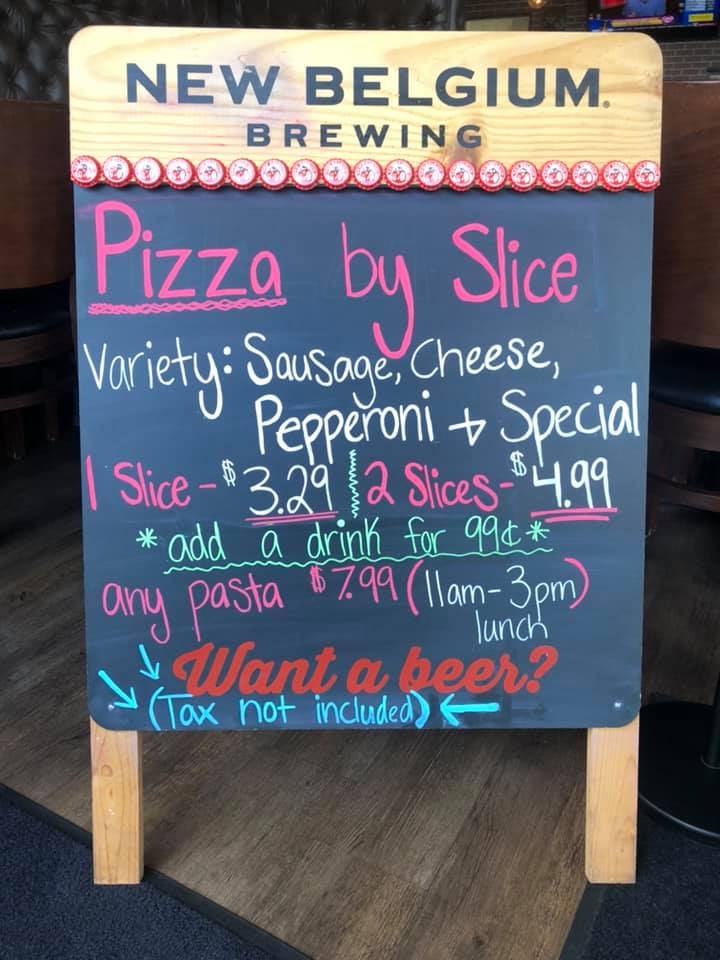 NEW BELGIUM.
BREWING
Pizza by Slice
Variety: Sausage, Cheese,
Pepperoni + Special
1 Slice - $3.29 2 Slices - $4.99
* add a drink for 99¢ *
any pasta $7.99 (11am-3pm)
lunch
Want a beer?
(Tax not included)